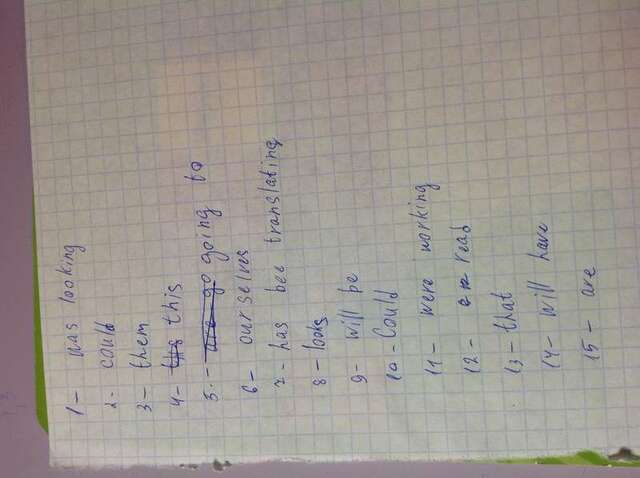 1- was looking
2- could
3- them
4- this
5.- going to
6- ourselves
7- has bee translating
8- looks
9- will be
10- Could
11- were working
12- read
13- that
14- will have
15- are